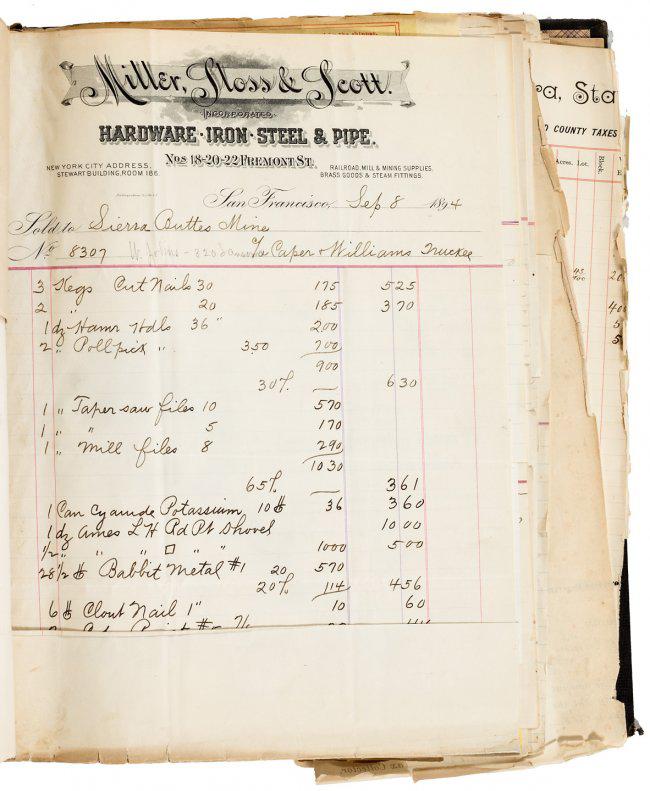 Miller, Sloss & Scott.
INCORPORATED
HARDWARE · IRON · STEEL & PIPE.
NEW YORK CITY ADDRESS,
STEWART BUILDING, ROOM 186.
Nos 18-20-22 FREMONT ST.
RAILROAD, MILL & MINING SUPPLIES,
BRASS GOODS & STEAM FITTINGS.
San Francisco, Sep 8 1894
Sold to Sierra Buttes Mine
No 8307 Caper & Williams Truckee
3 Kegs Cut Nails 30 175 525
2 " 20 185 370
1 dz Hamr Hdls 36" 200
2 " Poll pick " 3.50 700
900
30% — 630
1 " Taper saw files 10 570
1 " " 5 170
1 " Mill files 8 290
1030
65% — 361
1 Can Cyanide Potassium 10 # 36 360
1 dz Ames L H Rd Pt Shovel 1000
1/2 " " " □ " " 1000 500
28 1/2 # Babbit Metal #1 20 570
20% 114 456
6 # Clout Nail 1" 10 60
ra, Sta
COUNTY TAXES
Acres. Lot. Block